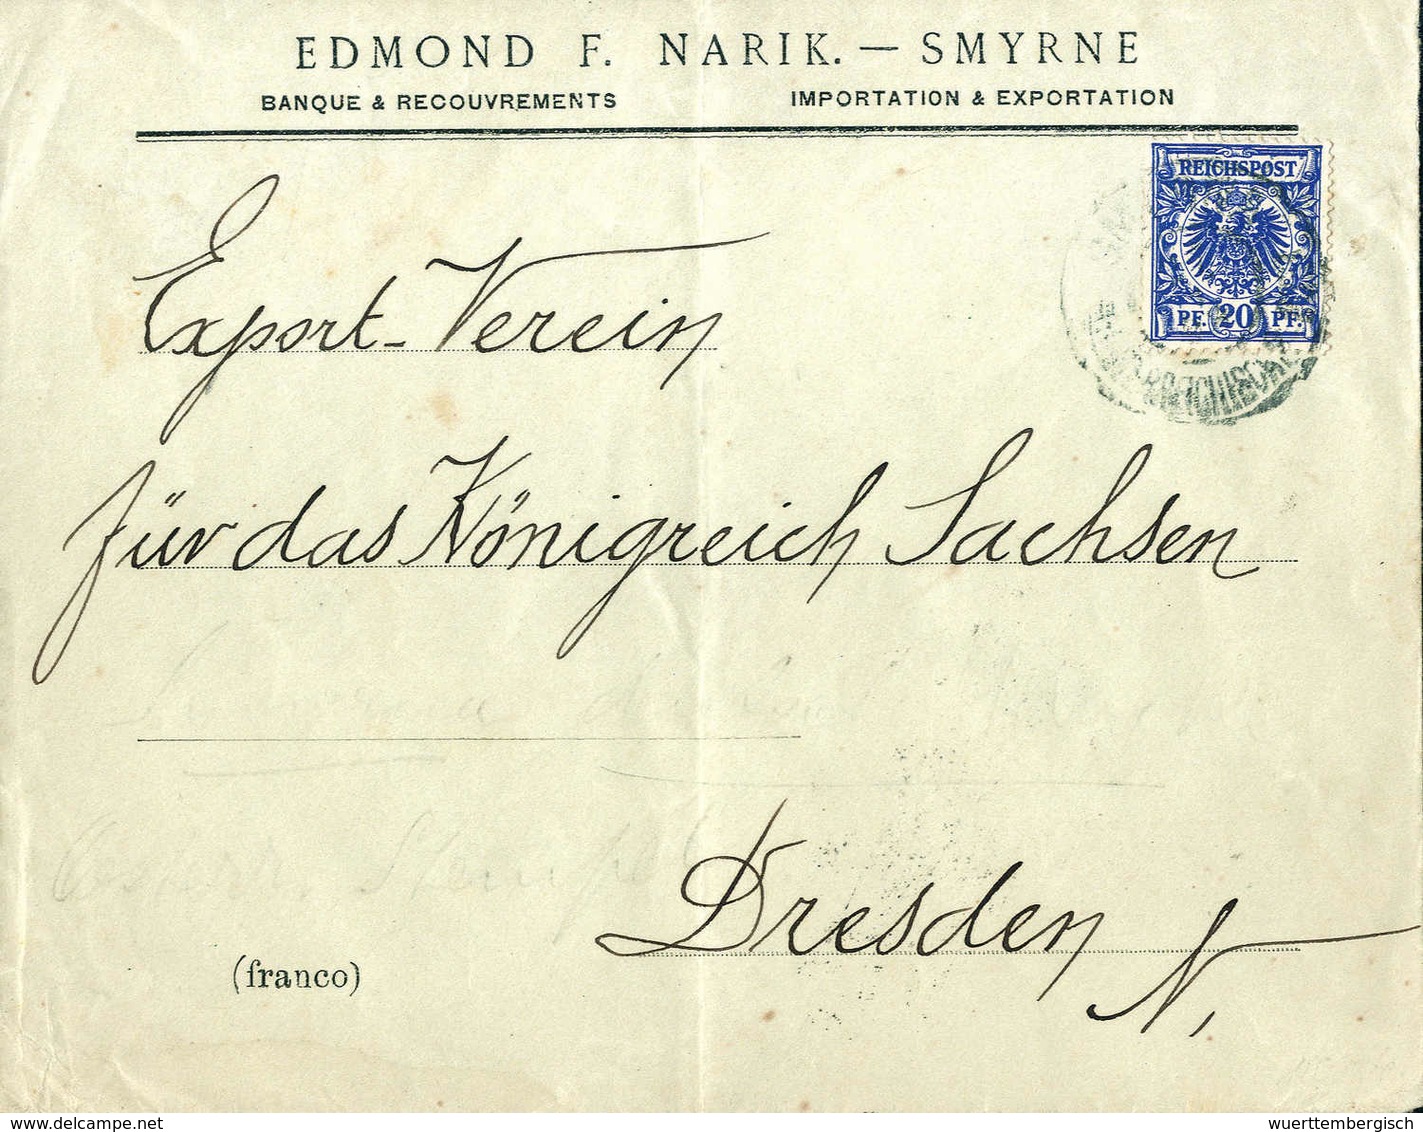 EDMOND F. NARIK. — SMYRNE
BANQUE & RECOUVREMENTS IMPORTATION & EXPORTATION
REICHSPOST
PF. 20 PF.
Export-Verein
für das Königreich Sachsen
Dresden
N,
(franco)
wuerttembergisch